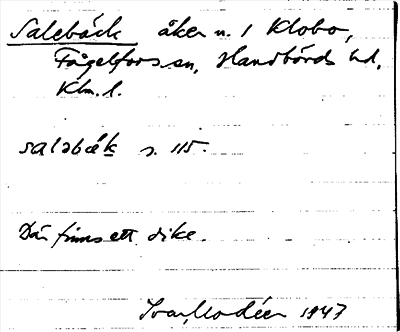 Salebäck åker n. 1 Klobo,
Fågelfors sn, Handbörds hd,
Klm. l.
saləbæk s. 115.
Där finns ett dike.
Ivar Modéer 1947